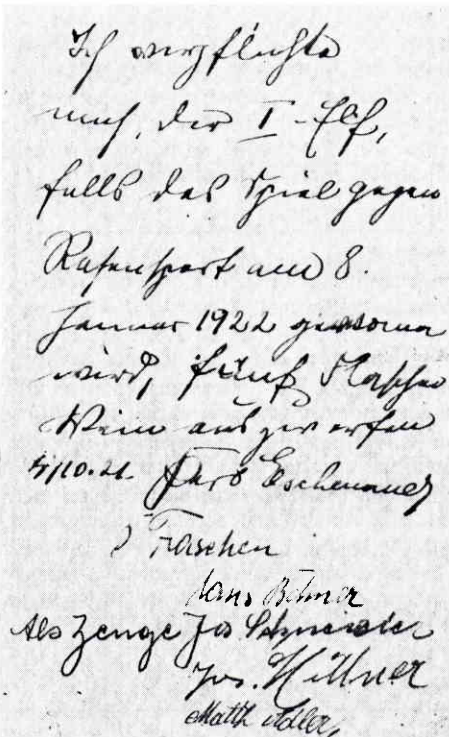 Ich verpflichte
mich, der I. Elf,
falls das Spiel gegen
Rasensport am 8.
Januar 1922 gewonnen
wird, fünf Flaschen
Wein auszuwerfen
10.21. Eschenauer
Flaschen
Hans Böhmer
Als Zeuge Jos Schneider
Jos. Hillner
Matth Adler,